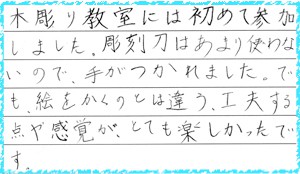 木彫り教室には初めて参加
しました。彫刻刀はあまり使わな
いので、手がつかれました。で
も、絵をかくのとは違う、工夫する
点や感覚が、とても楽しかったで
す。